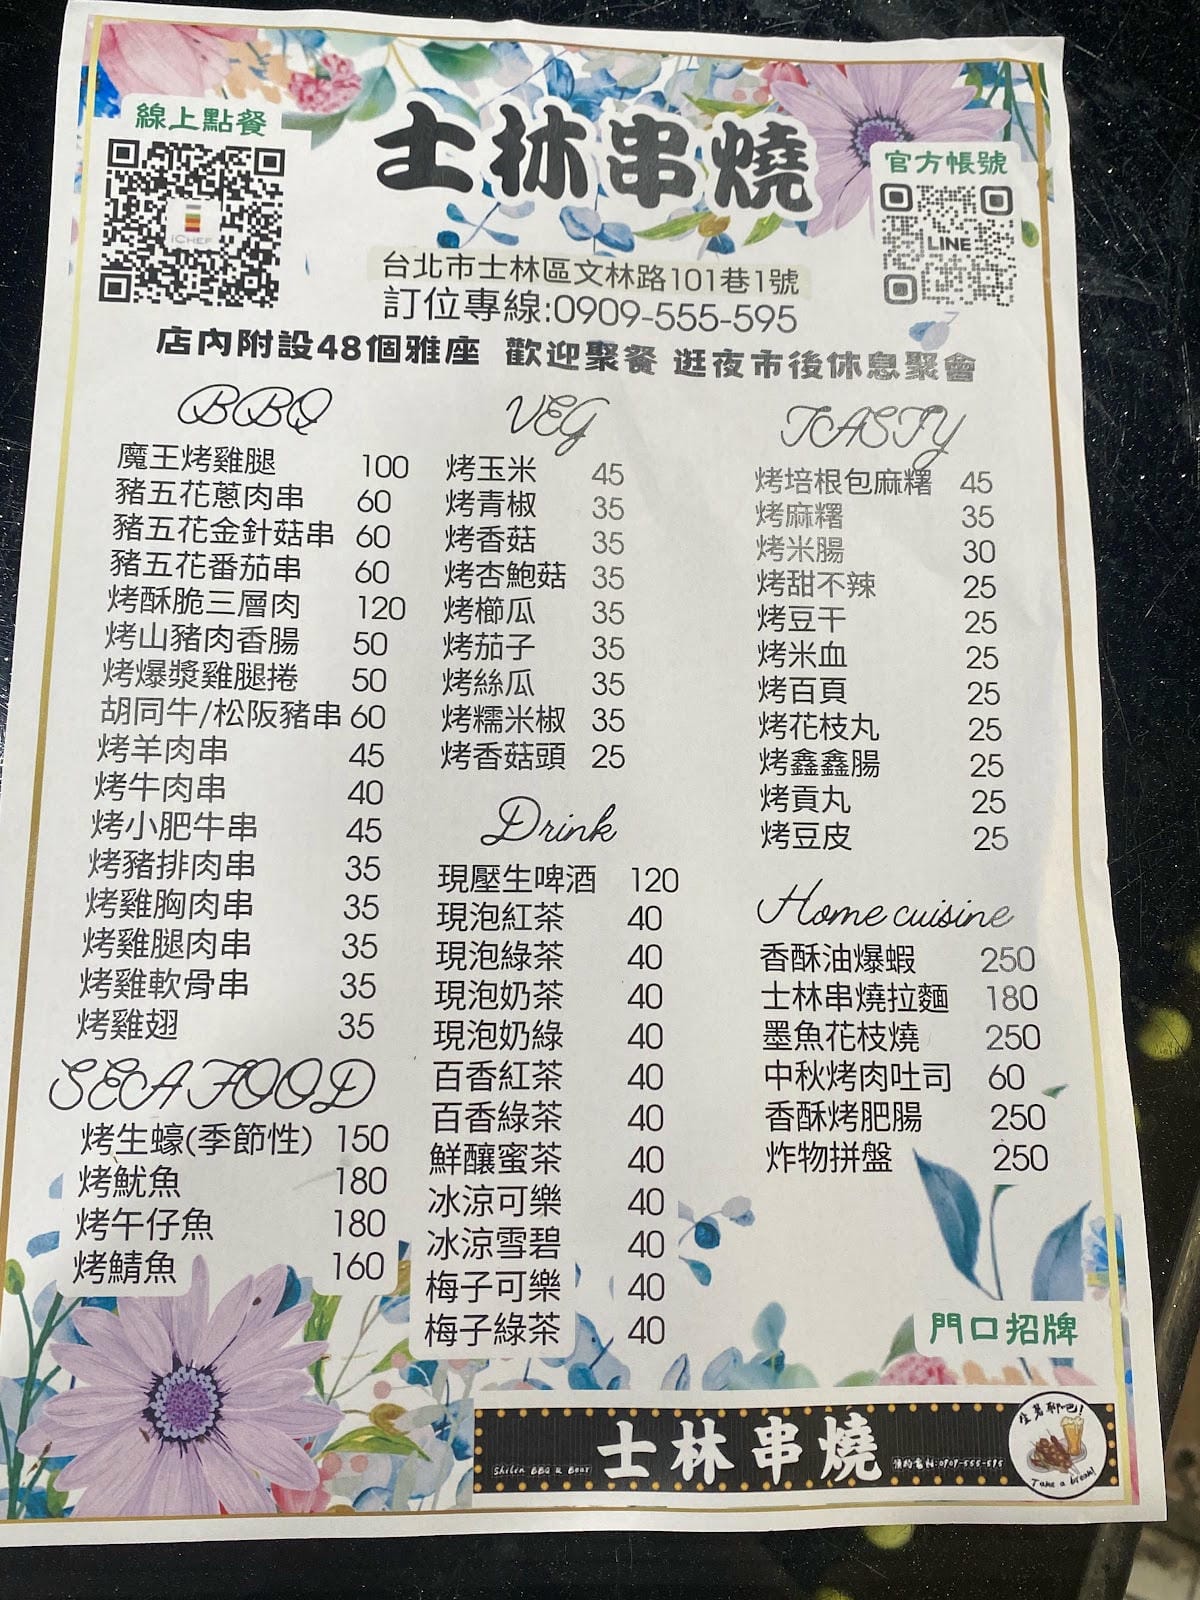 線上點餐
iCHEF
士林串燒
官方帳號
LINE
台北市士林區文林路101巷1號
訂位專線:0909-555-595
店內附設48個雅座 歡迎聚餐 逛夜市後休息聚會
BBQ
魔王烤雞腿 100
豬五花蔥肉串 60
豬五花金針菇串 60
豬五花番茄串 60
烤酥脆三層肉 120
烤山豬肉香腸 50
烤爆漿雞腿捲 50
胡同牛/松阪豬串 60
烤羊肉串 45
烤牛肉串 40
烤小肥牛串 45
烤豬排肉串 35
烤雞胸肉串 35
烤雞腿肉串 35
烤雞軟骨串 35
烤雞翅 35
SEAFOOD
烤生蠔(季節性) 150
烤魷魚 180
烤午仔魚 180
烤鯖魚 160
VEG
烤玉米 45
烤青椒 35
烤香菇 35
烤杏鮑菇 35
烤櫛瓜 35
烤茄子 35
烤絲瓜 35
烤糯米椒 35
烤香菇頭 25
Drink
現壓生啤酒 120
現泡紅茶 40
現泡綠茶 40
現泡奶茶 40
現泡奶綠 40
百香紅茶 40
百香綠茶 40
鮮釀蜜茶 40
冰涼可樂 40
冰涼雪碧 40
梅子可樂 40
梅子綠茶 40
TASTY
烤培根包麻糬 45
烤麻糬 35
烤米腸 30
烤甜不辣 25
烤豆干 25
烤米血 25
烤百頁 25
烤花枝丸 25
烤鑫鑫腸 25
烤貢丸 25
烤豆皮 25
Home cuisine
香酥油爆蝦 250
士林串燒拉麵 180
墨魚花枝燒 250
中秋烤肉吐司 60
香酥烤肥腸 250
炸物拼盤 250
門口招牌
Shilin BBQ & Beer
士林串燒
:0909-555-595
Take a break!